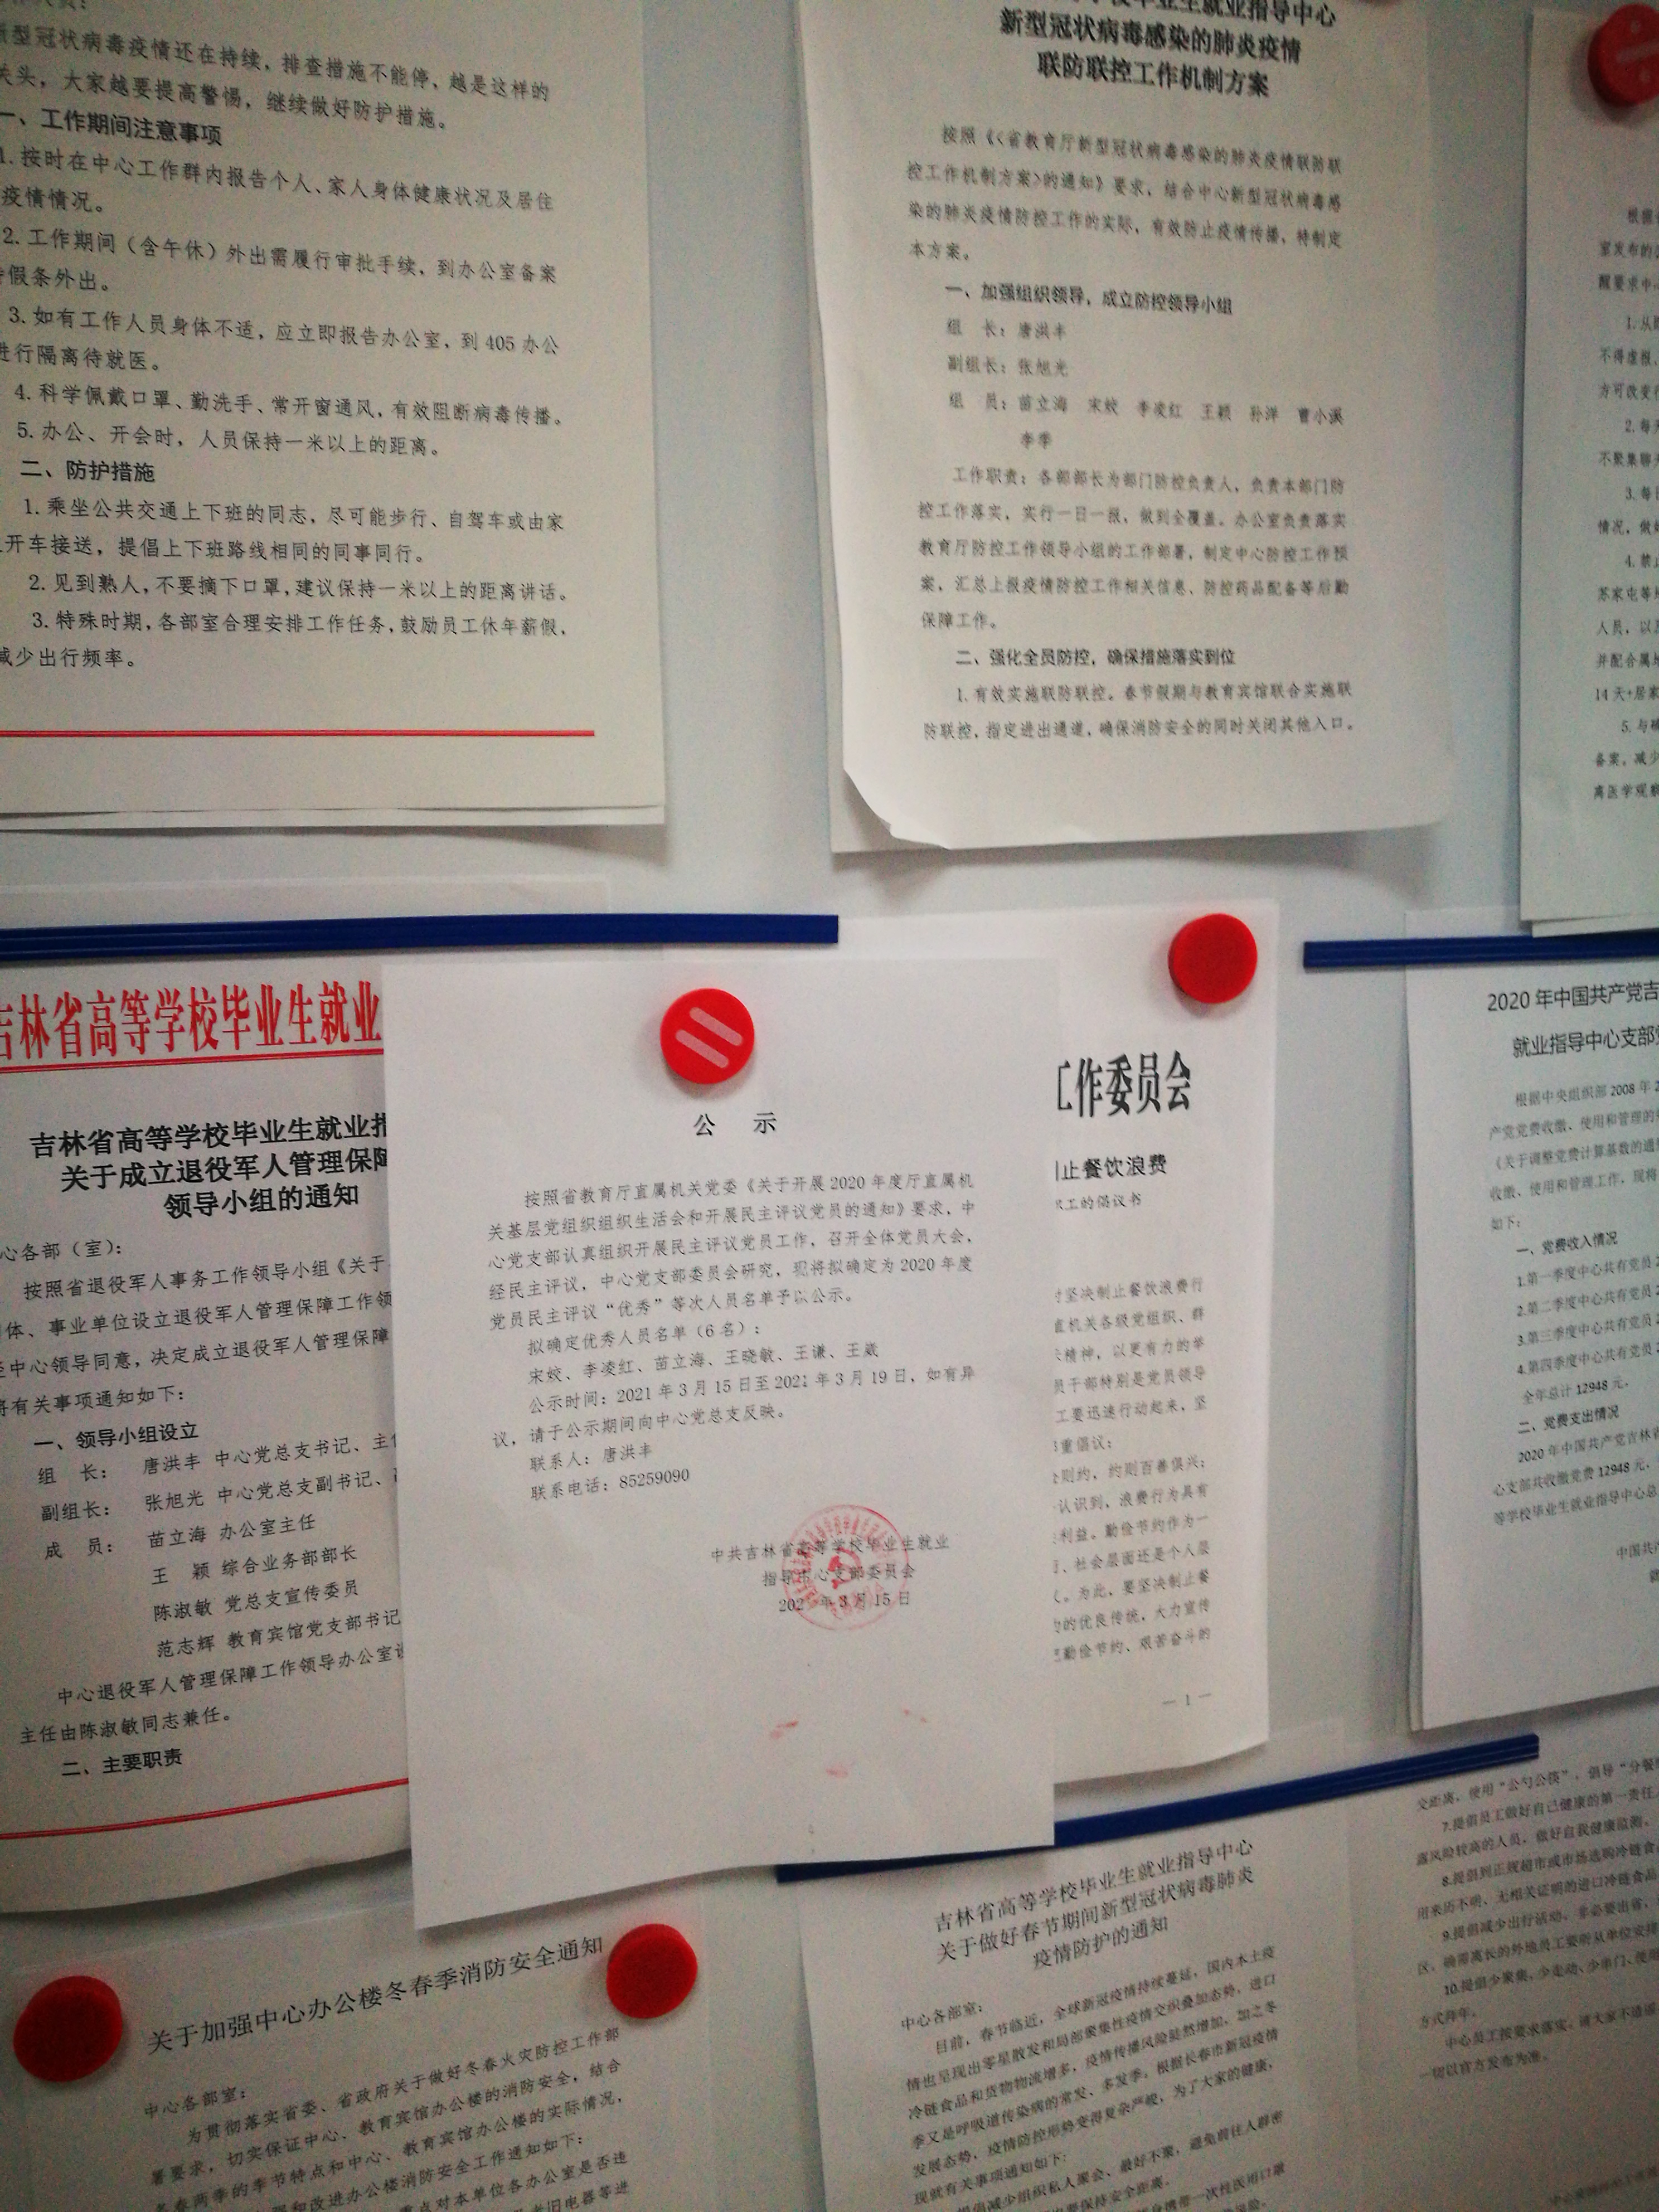 新型冠状病毒疫情还在持续，排查措施不能停，越是这样的
关头，大家越要提高警惕，继续做好防护措施。
一、工作期间注意事项
1.按时在中心工作群内报告个人、家人身体健康状况及居住
疫情情况。
2.工作期间（含午休）外出需履行审批手续，到办公室备案
假条外出。
3.如有工作人员身体不适，应立即报告办公室，到405办公
进行隔离待就医。
4.科学佩戴口罩、勤洗手、常开窗通风，有效阻断病毒传播。
5.办公、开会时，人员保持一米以上的距离。
二、防护措施
1.乘坐公共交通上下班的同志，尽可能步行、自驾车或由家
开车接送，提倡上下班路线相同的同事同行。
2.见到熟人，不要摘下口罩，建议保持一米以上的距离讲话。
3.特殊时期，各部室合理安排工作任务，鼓励员工休年薪假，
减少出行频率。
校毕业生就业指导中心
新型冠状病毒感染的肺炎疫情
联防联控工作机制方案
按照《<省教育厅新型冠状病毒感染的肺炎疫情联防联
控工作机制方案>的通知》要求，结合中心新型冠状病毒感
染的肺炎疫情防控工作的实际，有效防止疫情传播，特制定
本方案。
一、加强组织领导，成立防控领导小组
组　长：唐洪丰
副组长：张旭光
组　员：苗立海　宋姣　李凌红　王颖　孙洋　曹小溪
李季
工作职责：各部部长为部门防控负责人，负责本部门防
控工作落实，实行一日一报，做到全覆盖。办公室负责落实
教育厅防控工作领导小组的工作部署，制定中心防控工作预
案，汇总上报疫情防控工作相关信息、防控药品配备等后勤
保障工作。
二、强化全员防控，确保措施落实到位
1.有效实施联防联控。春节假期与教育宾馆联合实施联
防联控，指定进出通道，确保消防安全的同时关闭其他入口。
根据
室发布的
醒要求中
1.从
不得虚报、
方可改变行
2.每天
不聚集聊
3.每日
情况，做好
4.禁止
苏家屯等
人员，以
并配合属地
14天+居家
5.与
备案，减少
离医学观察
吉林省高等学校毕业生就业
吉林省高等学校毕业生就业指
关于成立退役军人管理保障
领导小组的通知
心各部（室）：
按照省退役军人事务工作领导小组《关于
体、事业单位设立退役军人管理保障工作领
中心领导同意，决定成立退役军人管理保障
将有关事项通知如下：
一、领导小组设立
组　长：　唐洪丰 中心党总支书记、主任
副组长：　张旭光 中心党总支副书记、
成　员：　苗立海 办公室主任
王　颖 综合业务部部长
陈淑敏 党总支宣传委员
范志辉 教育宾馆党支部书记
中心退役军人管理保障工作领导办公室设
主任由陈淑敏同志兼任。
二、主要职责
公　示
按照省教育厅直属机关党委《关于开展2020年度厅直属机
关基层党组织组织生活会和开展民主评议党员的通知》要求，中
心党支部认真组织开展民主评议党员工作，召开全体党员大会，
经民主评议，中心党支部委员会研究，现将拟确定为2020年度
党员民主评议“优秀”等次人员名单予以公示。
拟确定优秀人员名单（6名）：
宋姣、李凌红、苗立海、王晓敏、王谦、王崴
公示时间：2021年3月15日至2021年3月19日，如有异
议，请于公示期间向中心党总支反映。
联系人：唐洪丰
联系电话：85259090
中共吉林省高等学校毕业生就业
指导中心支部委员会
2021年3月15日
工作委员会
止餐饮浪费
职工的倡议书
坚决制止餐饮浪费行
直机关各级党组织、群
精神，以更有力的举
员干部特别是党员领导
工要迅速行动起来，坚
重倡议：
则约，约则百善俱兴；
认识到，浪费行为具有
利益。勤俭节约作为一
、社会层面还是个人层
。为此，要坚决制止餐
的优良传统，大力宣传
勤俭节约、艰苦奋斗的
— 1 —
2020年中国共产党吉
就业指导中心支部
根据中央组织部2008年2
产党党费收缴、使用和管理的
《关于调整党费计算基数的通
收缴、使用和管理工作，现将
如下：
一、党费收入情况
1.第一季度中心共有党员
2.第二季度中心共有党员
3.第三季度中心共有党员
4.第四季度中心共有党员
全年总计12948元。
二、党费支出情况
2020年中国共产党吉林省
心支部共收缴党费12948元，
等学校毕业生就业指导中心总
中国共产
关于加强中心办公楼冬春季消防安全通知
中心各部室：
为贯彻落实省委、省政府关于做好冬春火灾防控工作部
署要求，切实保证中心、教育宾馆办公楼的消防安全，结合
冬春两季的季节特点和中心、教育宾馆办公楼的实际情况，
和改进办公楼消防安全工作通知如下：
点对本单位各办公室是否违
老旧电器等进
吉林省高等学校毕业生就业指导中心
关于做好春节期间新型冠状病毒肺炎
疫情防护的通知
中心各部室：
目前，春节临近，全球新冠疫情持续蔓延，国内本土疫
情也呈现出零星散发和局部聚集性疫情交织叠加态势，进口
冷链食品和货物物流增多，疫情传播风险陡然增加，加之冬
季又是呼吸道传染病的常发、多发季，根据长春市新冠疫情
发展态势，疫情防控形势变得复杂严峻，为了大家的健康，
现就有关事项通知如下：
提倡减少组织私人聚会、最好不聚，避免前往人群密
要保持安全距离。
携带一次性医用口罩
交距离，使用“公勺公筷”，倡导“分餐
7.提倡员工做好自己健康的第一责任
露风险较高的人员，做好自我健康监测。
8.提倡到正规超市或市场选购冷链食品
用来历不明、无相关证明的进口冷链食品
9.提倡减少出行活动，非必要出省、
区，确需离长的外地员工要听从单位安排
10.提倡少聚集、少走动、少串门、使用
方式拜年。
中心员工按要求落实，请大家不造谣
一切以官方发布为准。